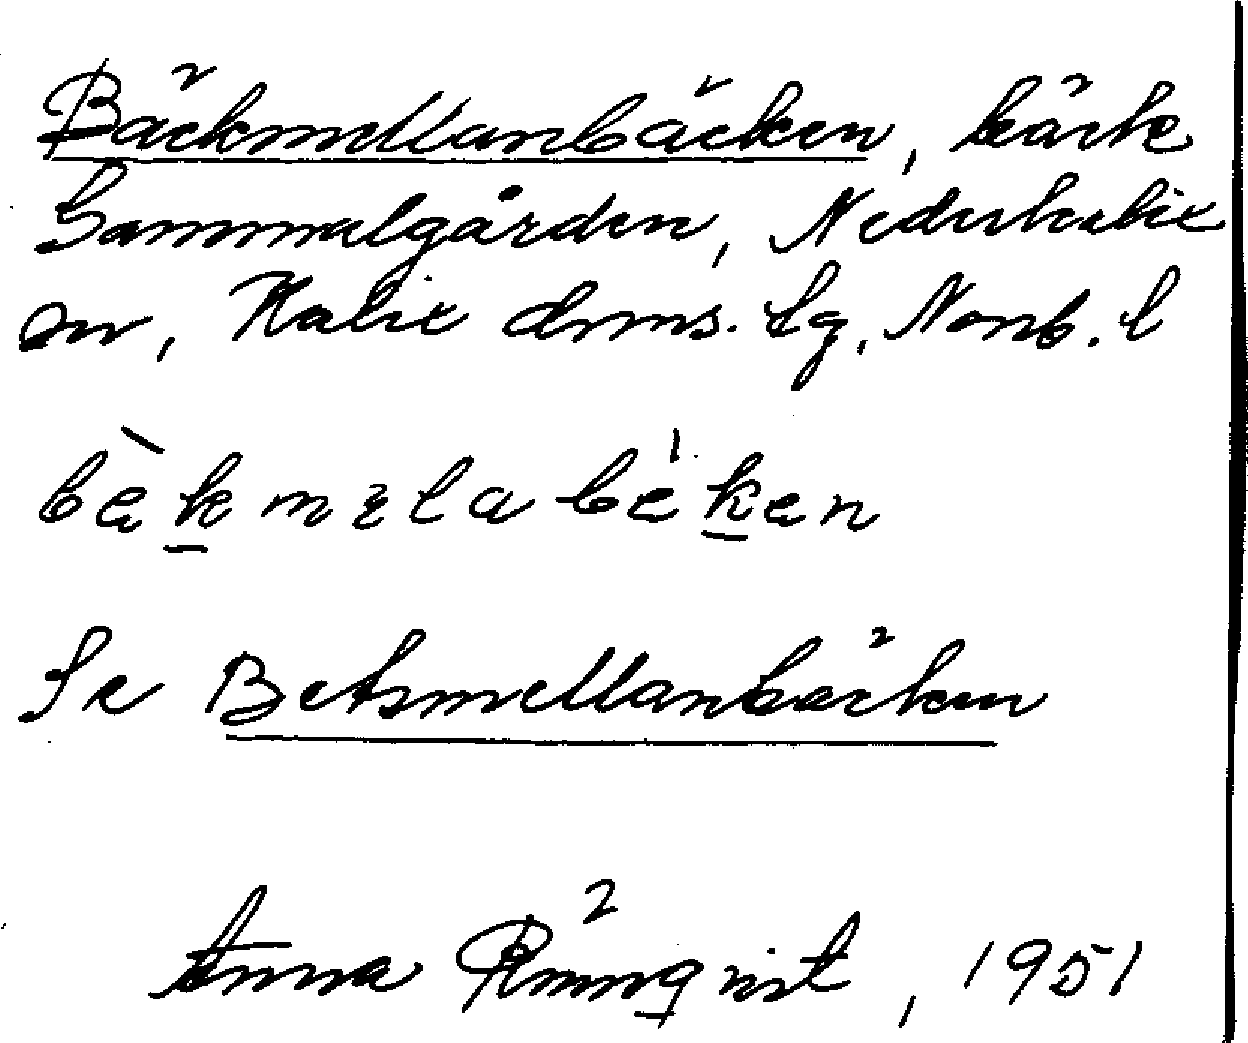 Bäckmellanbäcken, bäck
Gammalgården, Nederkalix
sn, Kalix dms. lg, Norrb. l
bèkmɛlabékən
Se Betsmellanbäcken
Anna Rönnqvist, 1951